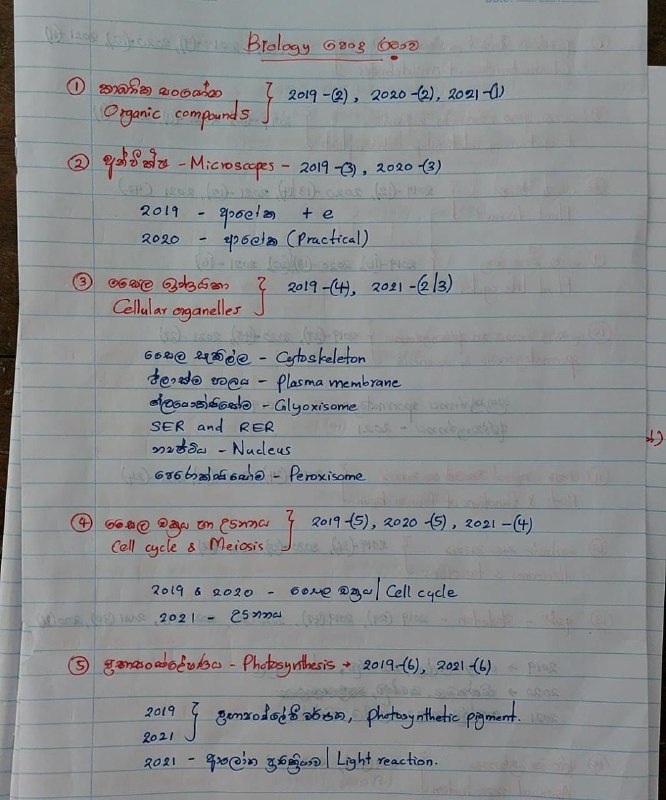 Biology පොදු රටාව
① කාබනික සංයෝග } 2019 -(2), 2020 -(2), 2021 -(1)
Organic compounds
② අන්වීක්ෂ - Microscopes - 2019 -(3), 2020 -(3)
2019 - ආලෝක + e
2020 - ආලෝක (Practical)
③ සෛල ඉන්ද්‍රයිකා } 2019 -(4), 2021 -(2/3)
Cellular organelles
සෛල සැකිල්ල - Cytoskeleton
ප්ලාස්ම පටලය - Plasma membrane
ග්ලයොක්සිසෝම - Glyoxisome
SER and RER
න්‍යෂ්ටිය - Nucleus
පෙරොක්සිසෝම - Peroxisome
④ සෛල චක්‍රය හා උඌනනය } 2019 -(5), 2020 -(5), 2021 -(4)
Cell cycle & Meiosis
2019 & 2020 - සෛල චක්‍රය | Cell cycle
2021 - උඌනනය
⑤ ප්‍රභාසංස්ලේෂණය - Photosynthesis → 2019 -(6), 2021 -(6)
2019 } ප්‍රභාසංස්ලේෂී වර්ණක, Photosynthetic pigment.
2021
2021 - ආලෝක ප්‍රතික්‍රියාව | Light reaction.